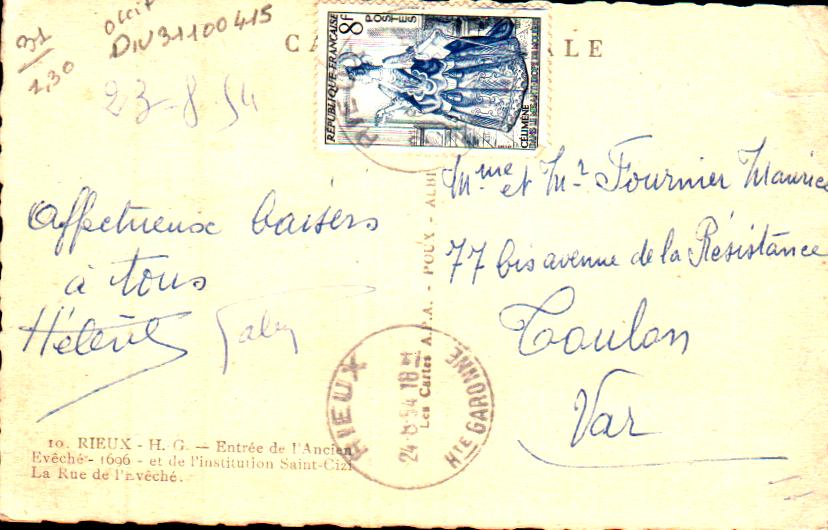 31
1,30
DIV31100415
23-8-54
CA
ALE
RÉPUBLIQUE FRANÇAISE
8F
POSTES
CÉLIMÈNE
DANS LE MISANTHROPE DE MOLIÈRE
Affectueux baisers
à tous
Hélène
Gaby
Les Cartes A.P.A. - POUX - ALBI
Mme et Mr Fournier Maurice
77 bis avenue de la Résistance
Toulon
Var
RIEUX
24-8-54 18H
Hte GARONNE
10. RIEUX - H. G. — Entrée de l'Ancien
Evêché - 1696 - et de l'institution Saint-Cizi
La Rue de l'Evêché.